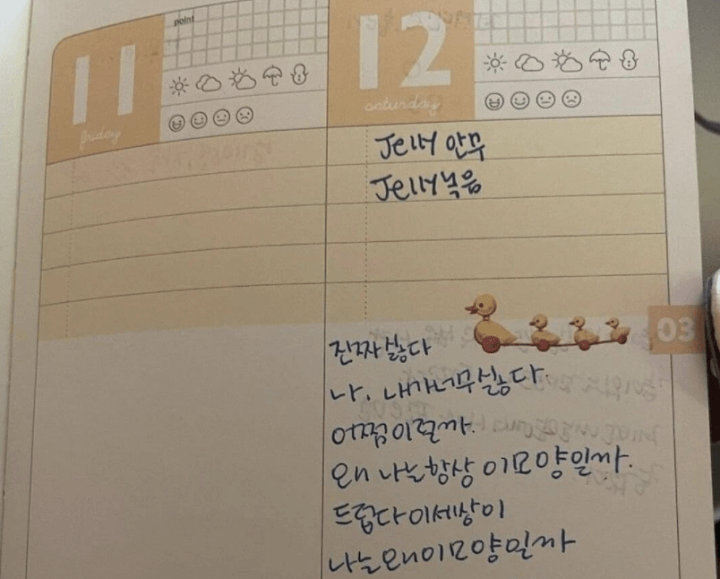 11
friday
point
12
saturday
Jelly 안무
Jelly 녹음
03
진짜 싫다
나. 내가 너무 싫다.
어쩜 이럴까.
왜 나는 항상 이모양일까.
드럽다 이세상이
나는 왜 이모양일까